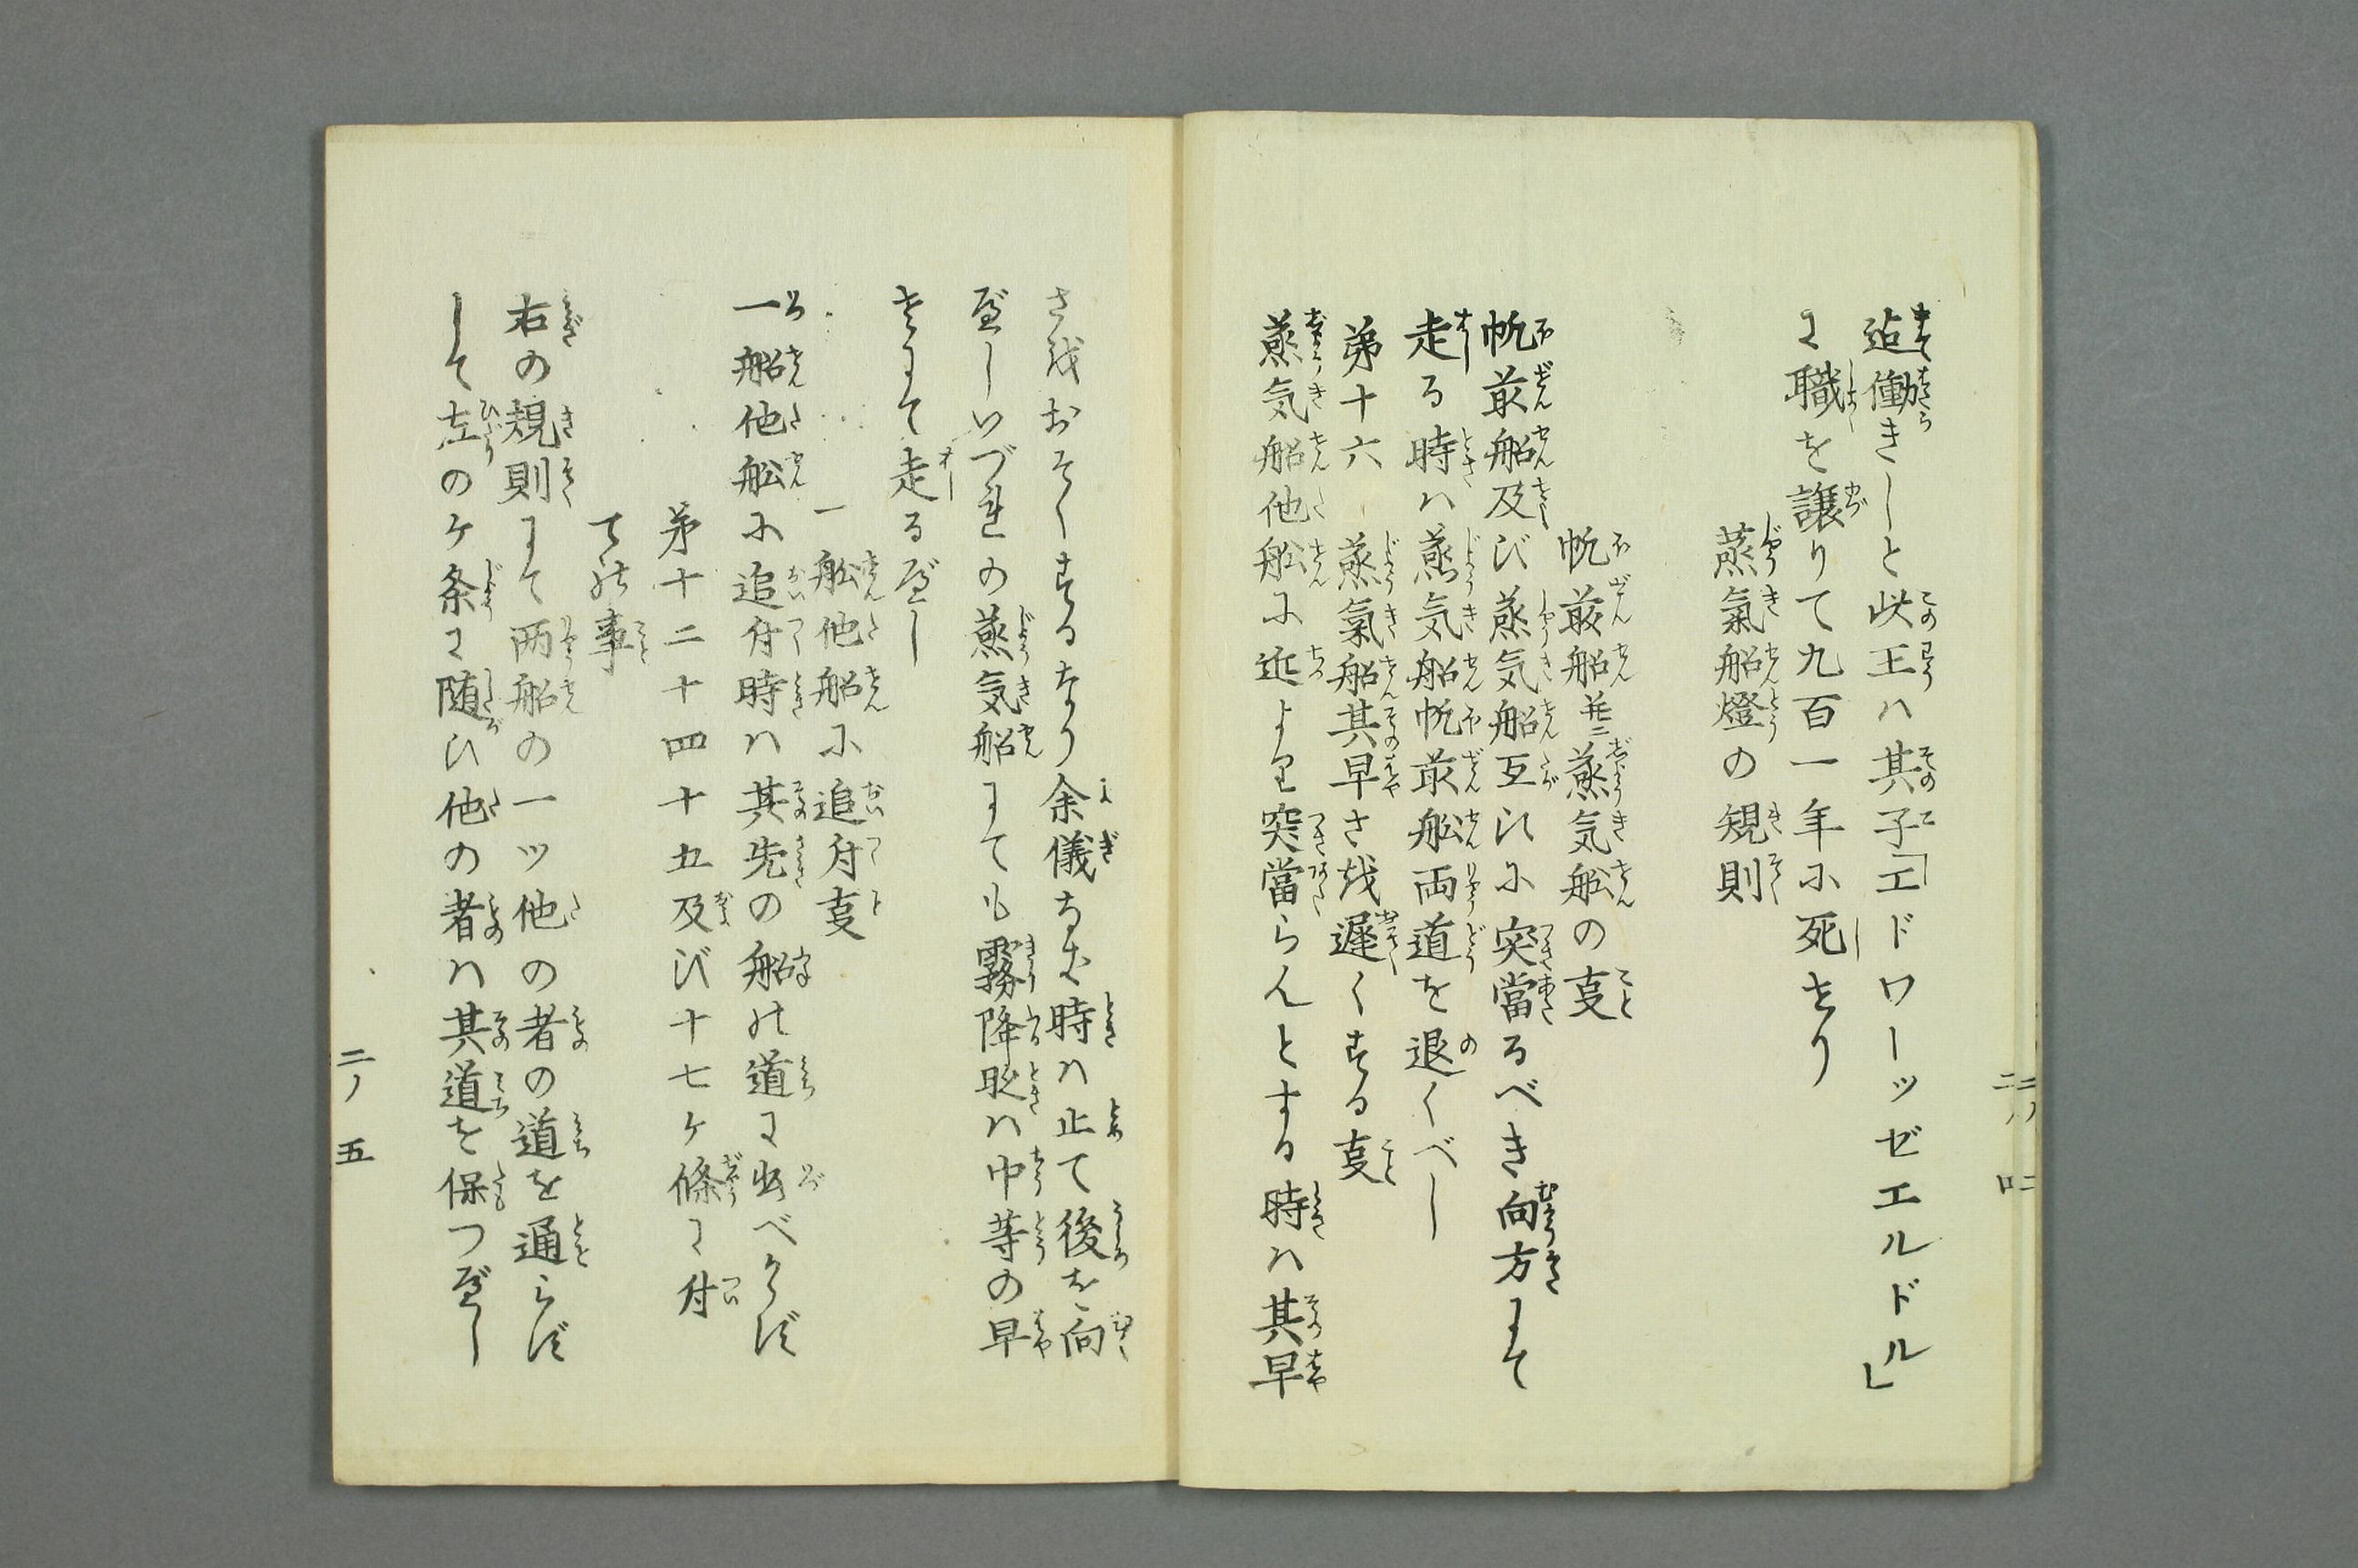 迠働きしと此王ハ其子「エドワーッゼエルドル」
に職を譲りて九百一年に死せり
蒸氣船燈の規則
帆前船並ニ蒸気船の叓
帆前船及び蒸気船互ひに突當るべき向方にて
走る時ハ蒸気船帆前舩両道を退くべし
第十六 蒸氣船其早さを遅くする叓
蒸気船他舩に近より突當らんとする時ハ其早
さをおそくするなり余儀なき時ハ止て後を向
べしいづれの蒸気船にても霧降時ハ中等の早
さにて走るべし
一 舩他船に追付叓
一船他舩に追付時ハ其先の船の道に出べからず
第十二十四十五及び十七ヶ條に付
ての事
右の規則にて両船の一ツ他の者の道を通らず
して左のヶ条に随ひ他の者ハ其道を保つべし
二ノ 五